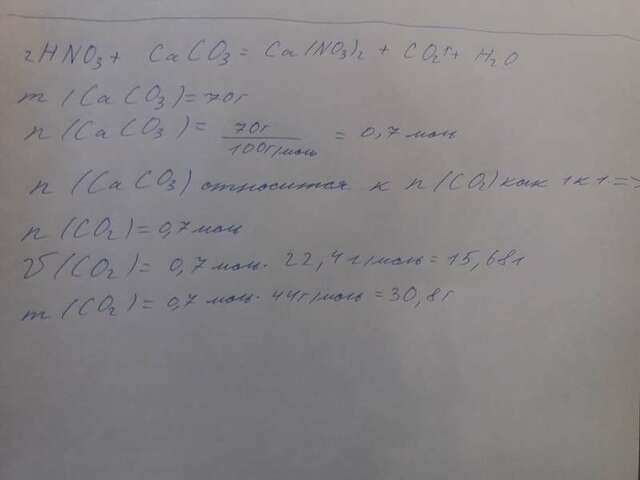 2HNO3 + CaCO3 = Ca(NO3)2 + CO2↑ + H2O
m(CaCO3)=70г
n(CaCO3) = 70г/100г/моль = 0,7 моль
n(CaCO3) относится к n(CO2) как 1 к 1 =>
n(CO2)=0,7моль
V(CO2)=0,7 моль · 22,4 л/моль = 15,68л
m(CO2)=0,7 моль · 44г/моль = 30,8г